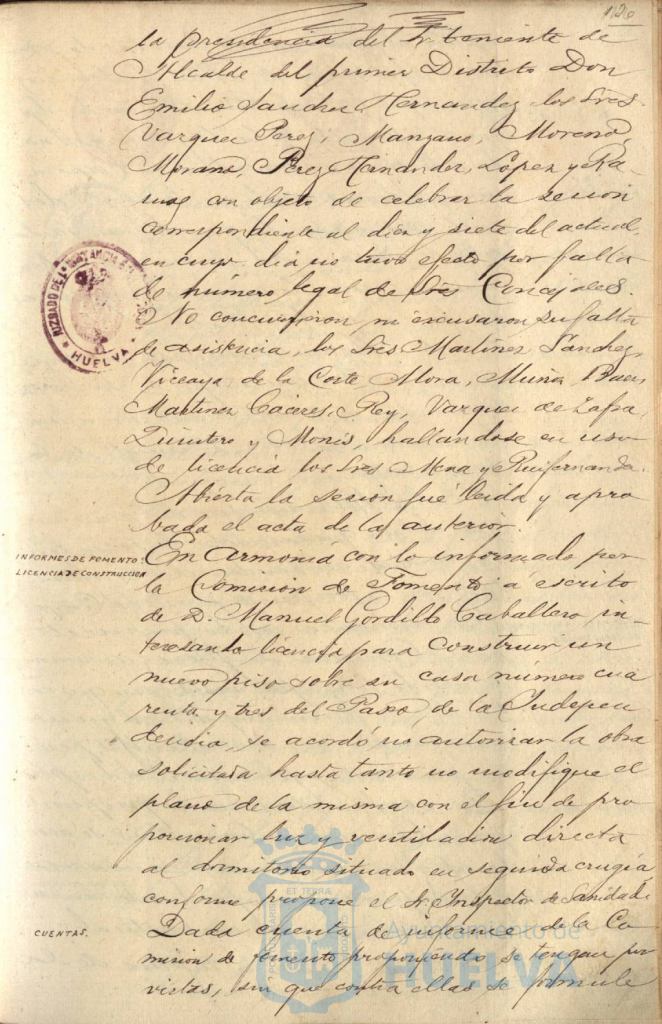 120
la presidencia del Sr. teniente de
Alcalde del primer Distrito Don
Emilio Sanchez Hernandez los Sres.
Vazquez Perez, Manzano, Moreno,
Morano, Perez Hernandez, Lopez y Ra-
mos con objeto de celebrar la sesion
correspondiente al diez y siete del actual,
en cuyo dia no tuvo efecto por falta
de número legal de Sres Concejales.
No concurrieron ni escusaron su falta
de asistencia, los Sres Martinez Sanchez,
Vizcaya de la Corte Mora, Muñiz, Baez
Martinez Cáceres, Rey, Vazquez de Zafra,
Quintero y Monis, hallandose en uso
de licencia los Sres Mena y Ruifernandez.
Abierta la sesion fué leida y apro
bada el acta de la anterior.
INFORMES DE FOMENTO:
LICENCIA DE CONSTRUCCION
En armonia con lo informado por
la Comision de Fomento á escrito
de D. Manuel Gordillo Caballero in-
teresando licencia para construir un
nuevo piso sobre su casa número cua
renta y tres del Paseo de la Indepen
dencia, se acordó no autorizar la obra
solicitada hasta tanto no modifique el
plano de la misma con el fin de pro
porcionar luz y ventilacion directa
al dormitorio situado en segunda crugia,
conforme propone el Sr Inspector de Sanidad.
CUENTAS.
Dada cuenta de informe de la Co
mision de fomento proponiendo se tengan por
vistas, sin que contra ellas se formule
JUZGADO DE 1ª INSTANCIA
HUELVA
ET TERRAE
Ayuntamiento de
HUELVA